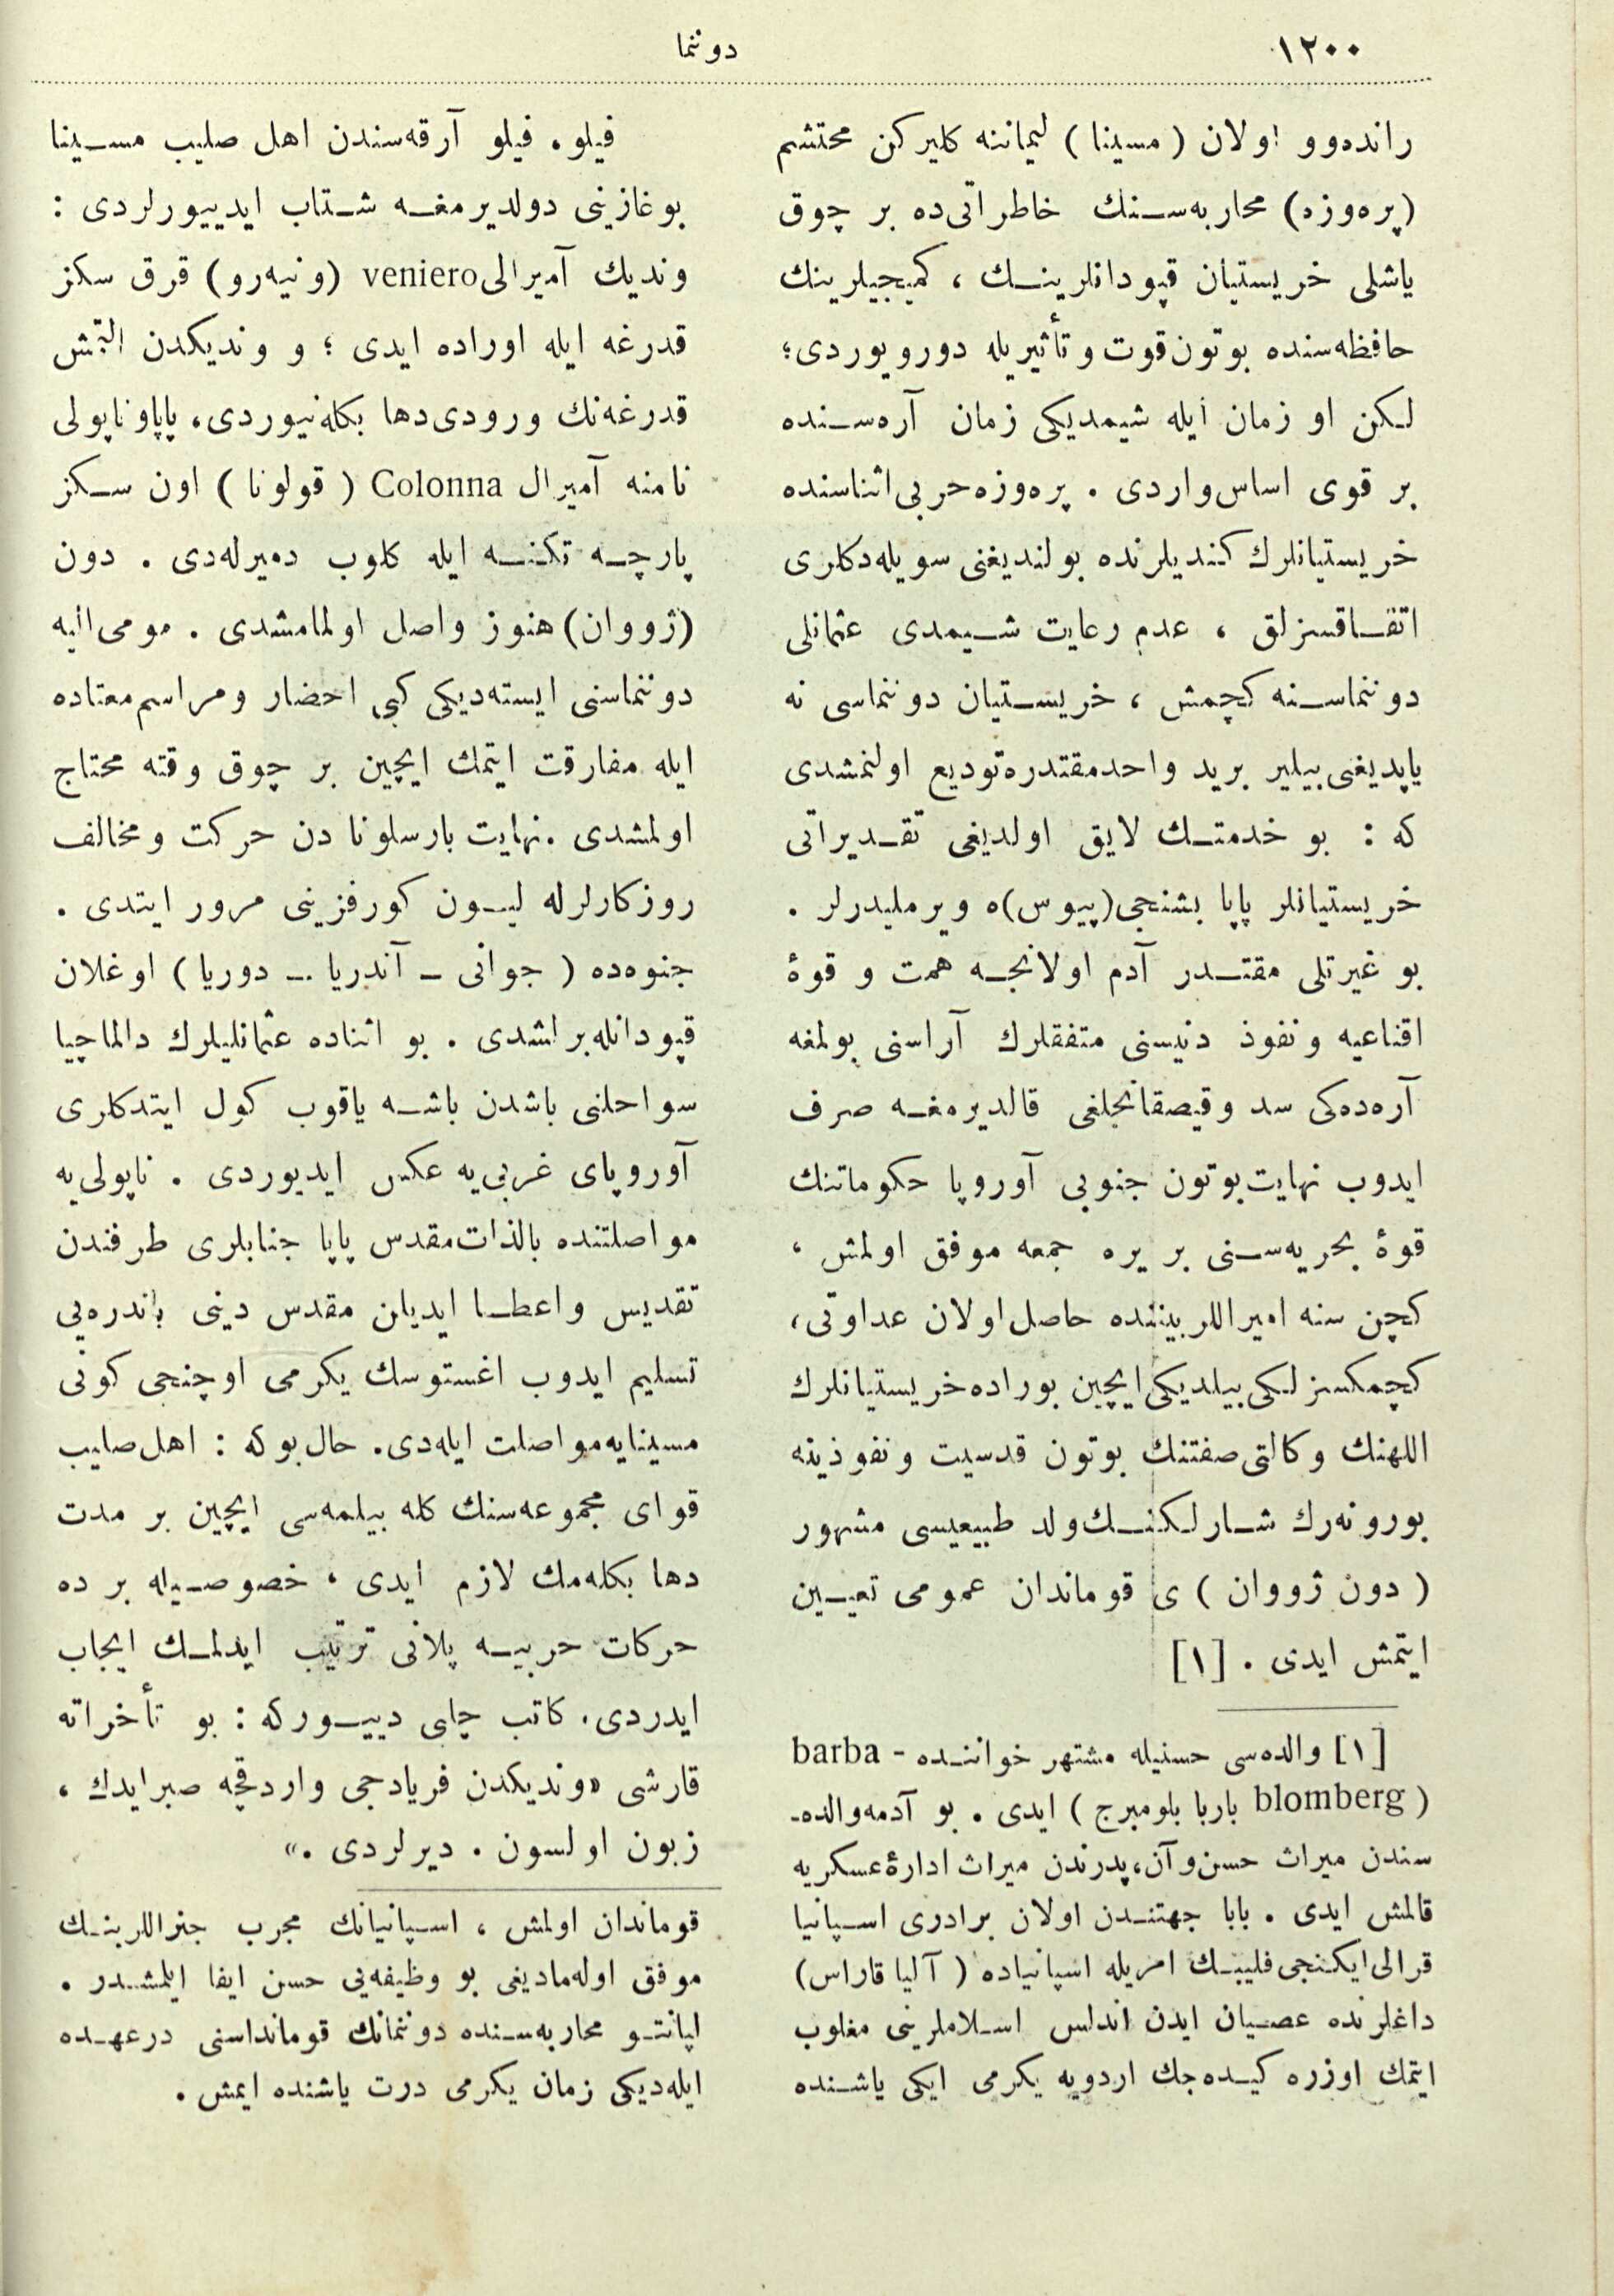 ١٢٠٠
دوننما
رانده‌وو اولان ( مسینا ) لیماننه کلیرکن محتشم
(پره‌وزه) محاربه‌سنك خاطراتی‌ده بر چوق
یاشلی خریستیان قپودانلرینك ، کمیجیلرینك
حافظه‌سنده بوتون قوت و تأثیریله دورویوردی؛
لکن او زمان ایله شیمدیکی زمان آره‌سنده
بر قوی اساس واردی . پره‌وزه حربی اثناسنده
خریستیانلرك کندیلرنده بولندیغنی سویله‌دکلری
اتفاقسزلق ، عدم رعایت شیمدی عثمانلی
دوننماسنه کچمش ، خریستیان دوننماسی نه
یاپدیغی بیلیر برید واحد مقتدره تودیع اولنمشدی
که : بو خدمتك لایق اولدیغی تقدیراتی
خریستیانلر پاپا بشنجی (پیوس)ه ویرملیدرلر .
بو غیرتلی مقتدر آدم اولانجه همت و قوۀ
اقناعیه و نفوذ دنیسنی متفقلرك آراسنی بولمغه
آره‌ده‌کی سد و قیصقانجلغی قالدیرمغه صرف
ایدوب نهایت بوتون جنوبی آوروپا حکوماتنك
قوۀ بحریه‌سنی بر یره جمعه موفق اولمش ،
کچن سنه امیراللر بیننده حاصل اولان عداوتی،
کچمکسزلکی بیلدیکی ایچین بوراده خریستیانلرك
اللهنك وکالتی صفتنك بوتون قدسیت و نفوذینه
بورونه‌رك شارلکنك ولد طبیعیسی مشهور
( دون ژووان ) ی قوماندان عمومی تعیین
ایتمش ایدی . [١]
[١] والده‌سی حسنیله مشتهر خواننده - barba
( blomberg باربا بلومبرج ) ایدی . بو آدمه والده‌ـ
سندن میراث حسن و آن، پدرندن میراث ادارۀ عسکریه
قالمش ایدی . بابا جهتندن اولان برادری اسپانیا
قرالی ایکنجی فلیپك امریله اسپانیاده ( آلیا قاراس)
داغلرنده عصیان ایدن اندلس اسلاملرینی مغلوب
ایتمك اوزره کیده‌جك اردویه یکرمی ایکی یاشنده
فیلو، فیلو آرقه‌سندن اهل صلیب مسینا
بوغازینی دولدیرمغه شتاب ایدییورلردی :
وندیك آمیرالی veniero (ونیه‌رو) قرق سکز
قدرغه ایله اوراده ایدی ؛ و وندیکدن التمش
قدرغه‌نك ورودی دها بکله‌نیوردی، پاپا و ناپولی
نامنه آمیرال Colonna ( قولونا ) اون سکز
پارچه تکنه ایله کلوب دمیرله‌دی . دون
(ژووان) هنوز واصل اولمامشدی . مومی الیه
دوننماسنی ایسته‌دیکی کبی احضار و مراسم معتاده
ایله مفارقت ایتمك ایچین بر چوق وقته محتاج
اولمشدی . نهایت بارسلونا دن حرکت و مخالف
روزکارلرله لیون کورفزینی مرور ایتدی .
جنوه‌ده ( جوانی ـ آندریا ـ دوریا ) اوغلان
قپودانله براشدی . بو اثناده عثمانلیلرك دالماچیا
سواحلنی باشدن باشه یاقوب کول ایتدکلری
آوروپای غربی‌یه عکس ایدیوردی . ناپولی‌یه
مواصلتنده بالذات مقدس پاپا جنابلری طرفندن
تقدیس و اعطا ایدیلن مقدس دینی باندره‌یی
تسلیم ایدوب اغستوسك یکرمی اوچنجی کونی
مسینایه مواصلت ایله‌دی. حال بوکه : اهل صلیب
قوای مجموعه‌سنك کله بیلمه‌سی ایچین بر مدت
دها بکله‌مك لازم ایدی ، خصوصیله بر ده
حرکات حربیه پلانی ترتیب ایدلمك ایجاب
ایدردی. کاتب چلبی دییورکه : بو تأخراته
قارشی «وندیکدن فریادجی واردقچه صبر ایدك ،
زبون اولسون . دیرلردی .»
قوماندان اولمش ، اسپانیانك مجرب جنراللرینك
موفق اوله‌مادیغی بو وظیفه‌یی حسن ایفا ایلمشدر .
لپانتو محاربه‌سنده دوننمانك قومانداسنی درعهده
ایله‌دیکی زمان یکرمی درت یاشنده ایمش .